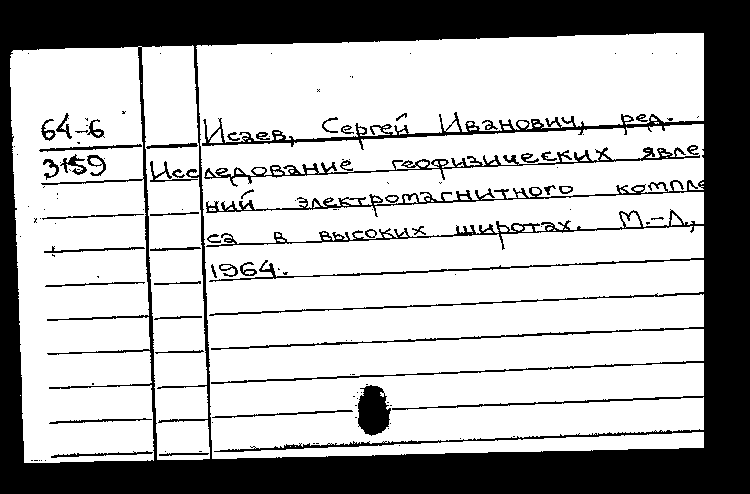 64-6 Исаев, Сергей Иванович, ред.
3159 Исследование геофизических явле
ний электромагнитного компле
са в высоких широтах. М.-Л.,
1964.